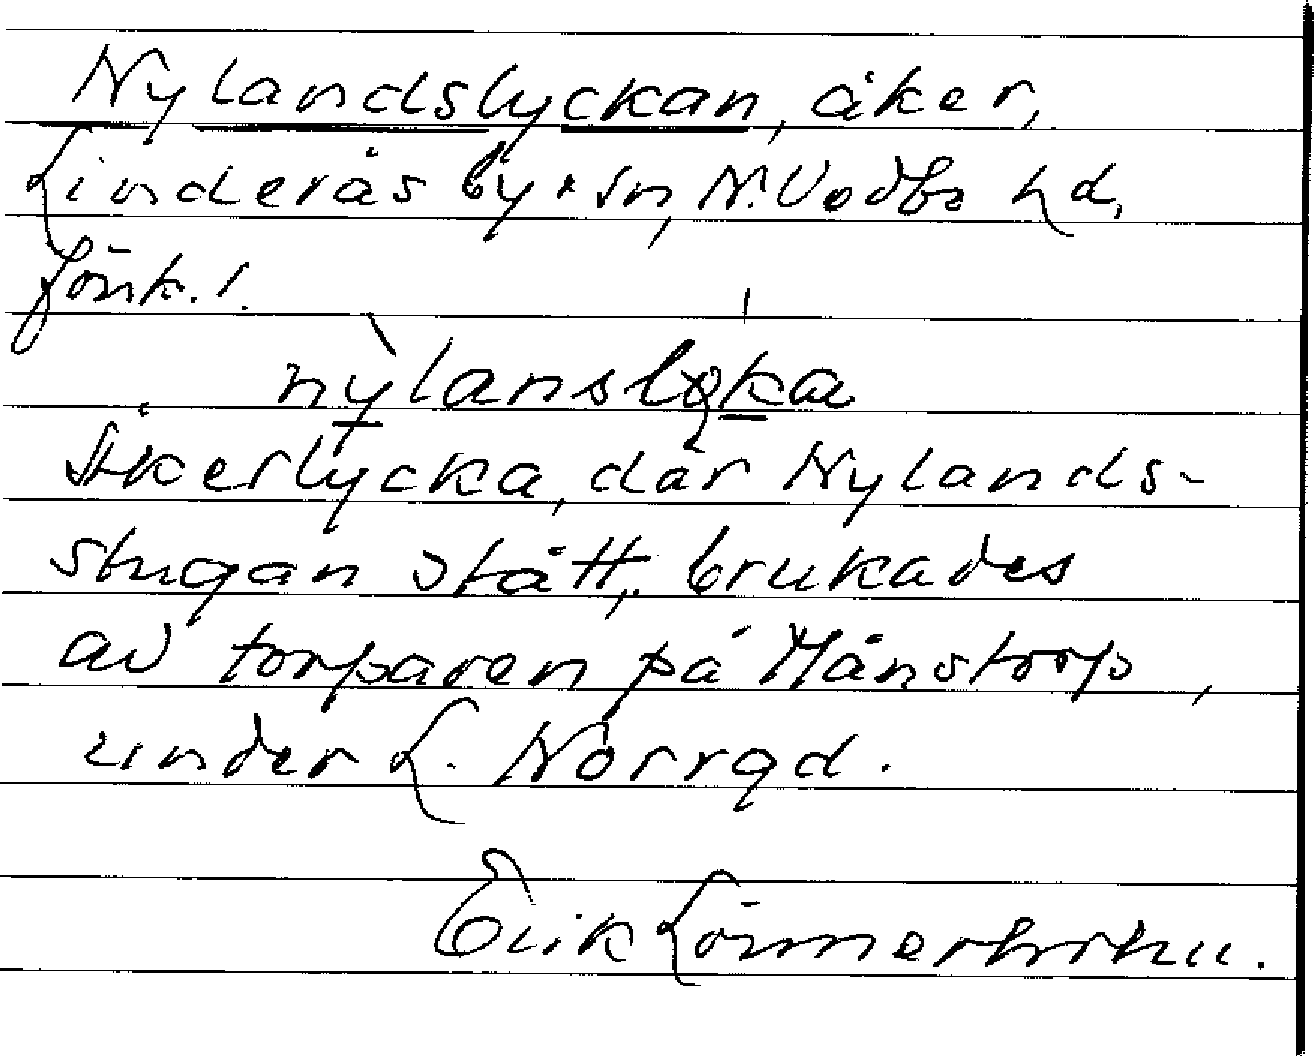 Nylandslyckan, åker,
Linderås by o sn, N. Vedbo hd,
Jönk. l.
nylanslka
Åkerlycka, där Nylands-
stugan stått, brukades
av torparen på Månstorp,
under L. Norrgd.
Erik